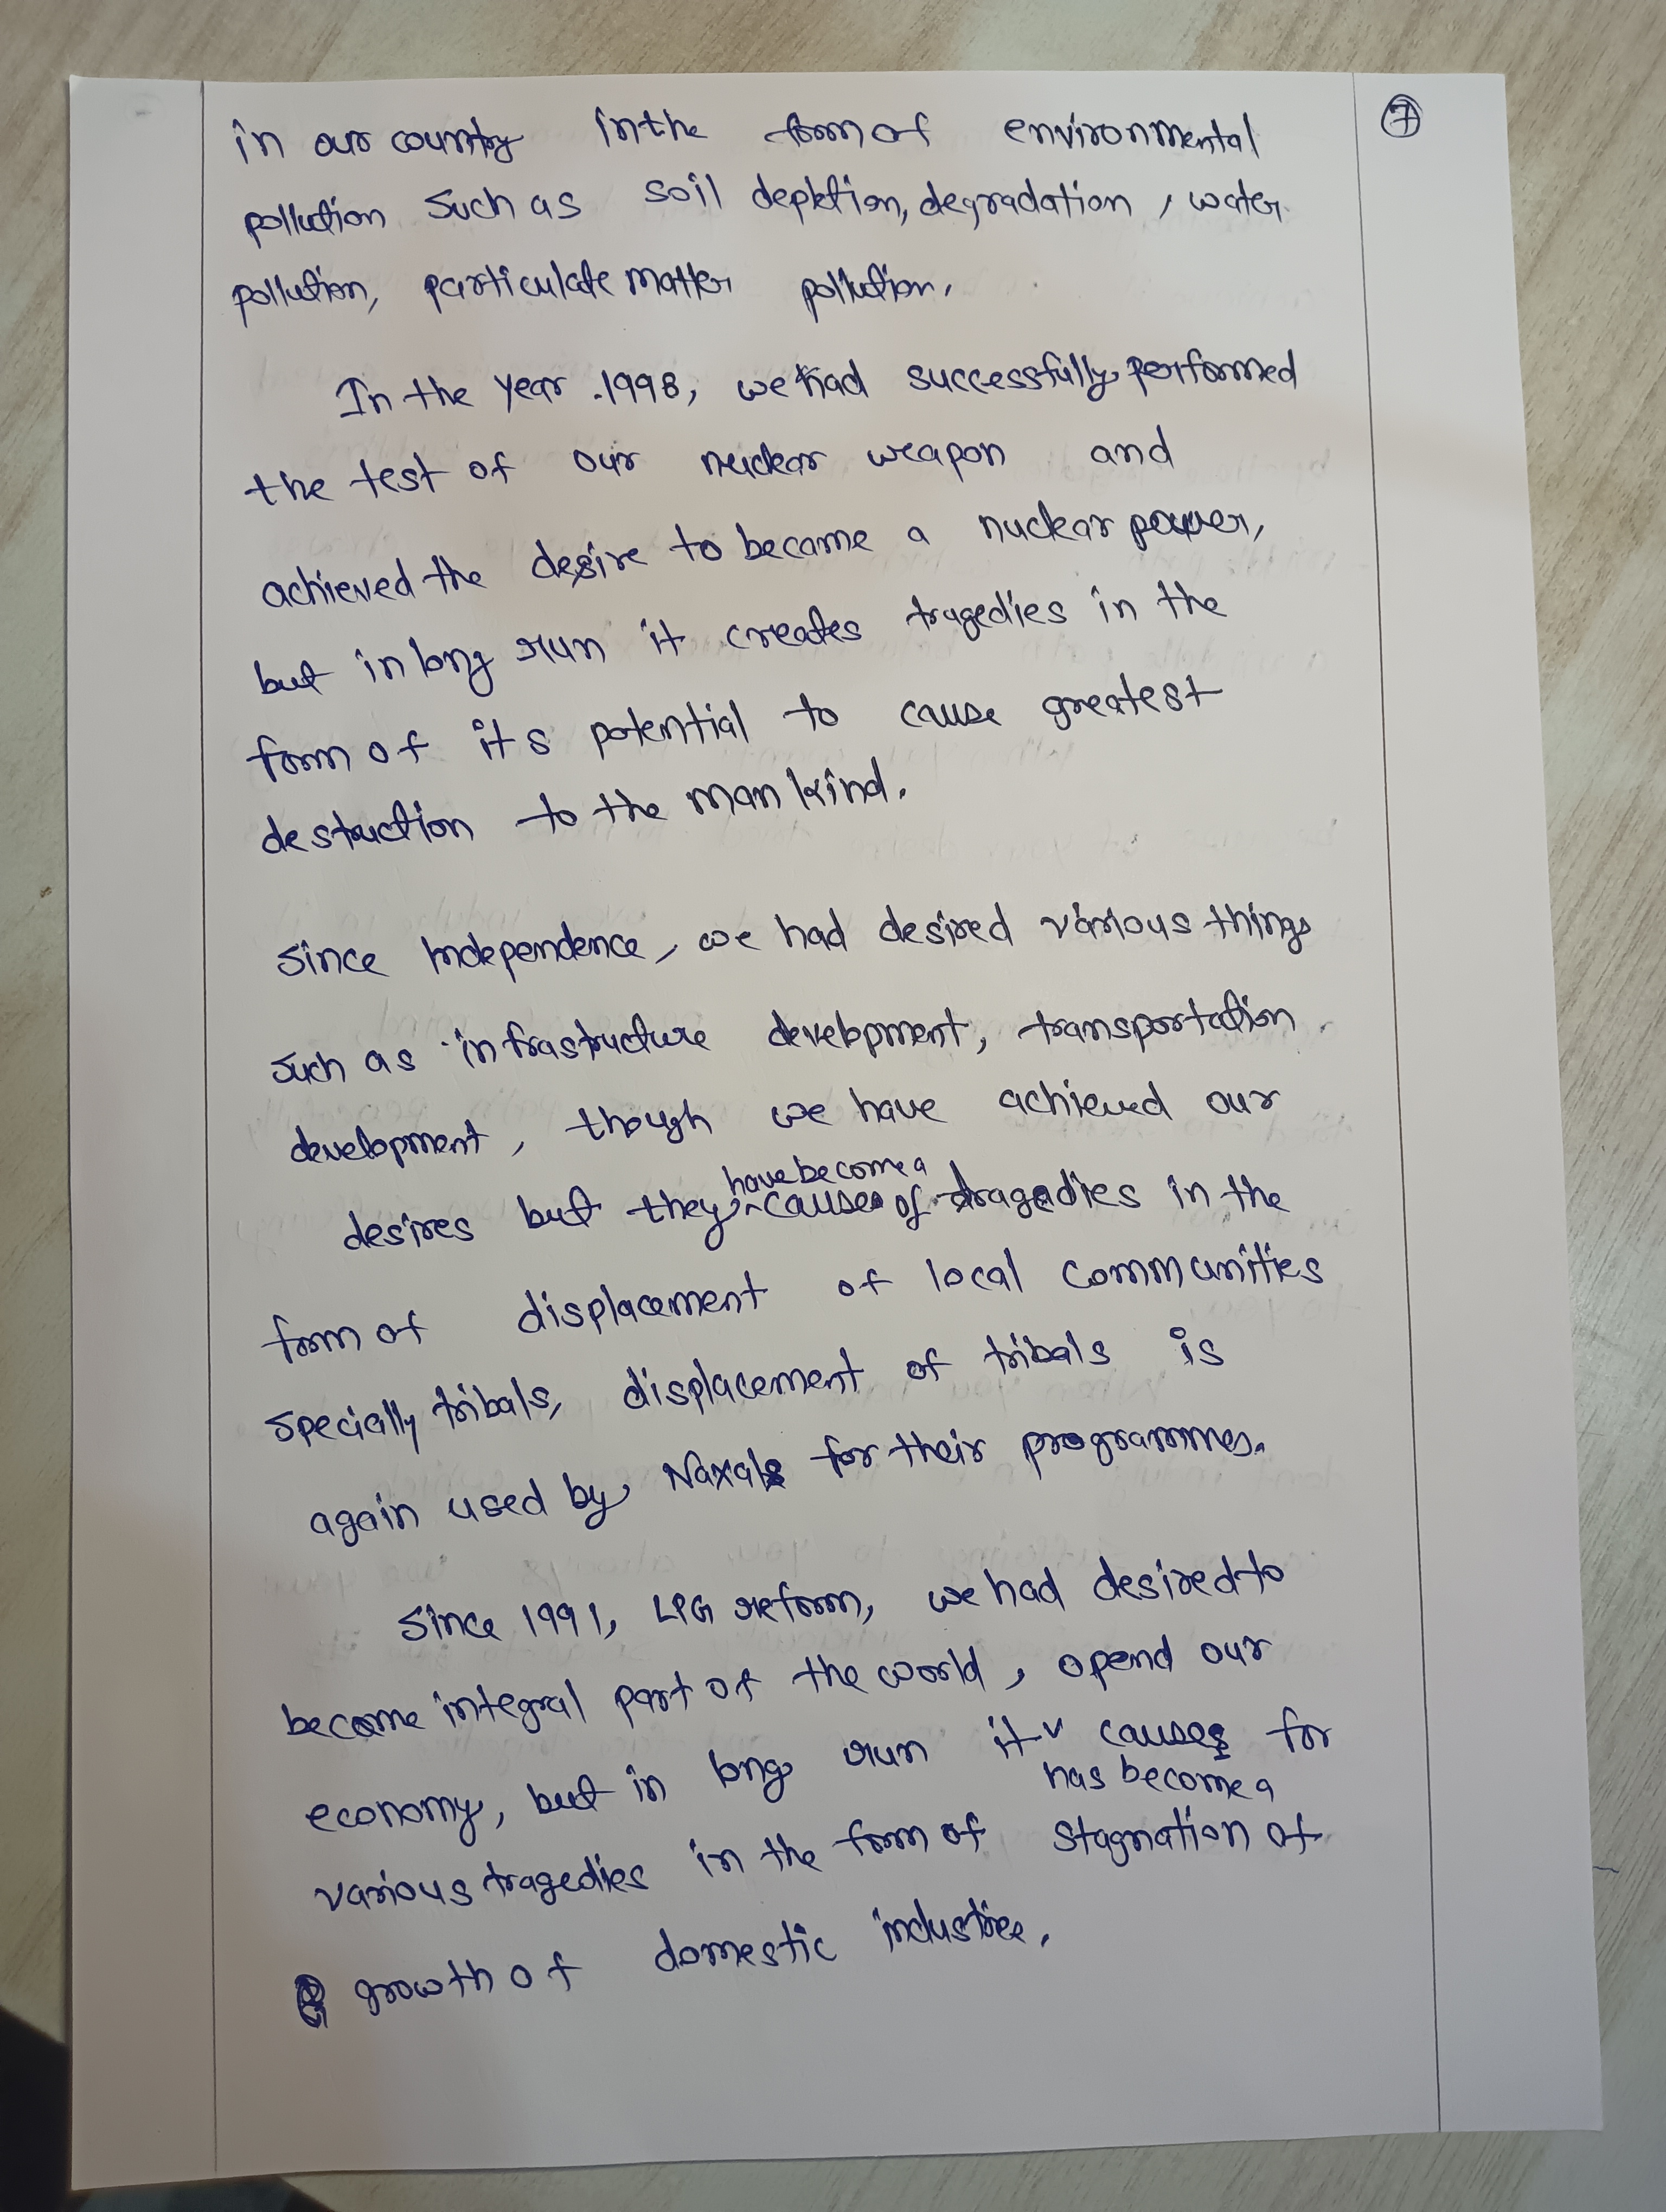 7
in our country in the form of environmental
pollution such as soil depletion, degradation, water
pollution, particulate matter pollution.
In the year 1998, we had successfully performed
the test of our nuclear weapon and
achieved the desire to become a nuclear power,
but in long run it creates tragedies in the
form of its potential to cause greatest
destruction to the man kind.
Since Independence, we had desired various things
such as infrastructure development, transportation
development, though we have achieved our
have become a
desires but they causes of tragedies in the
form of displacement of local communities
specially tribals, displacement of tribals is
again used by Naxals for their programmes.
Since 1991, LPG reform, we had desired to
become integral part of the world, opend our
economy, but in long run it causes for
has become a
various tragedies in the form of stagnation of
growth of domestic industries.